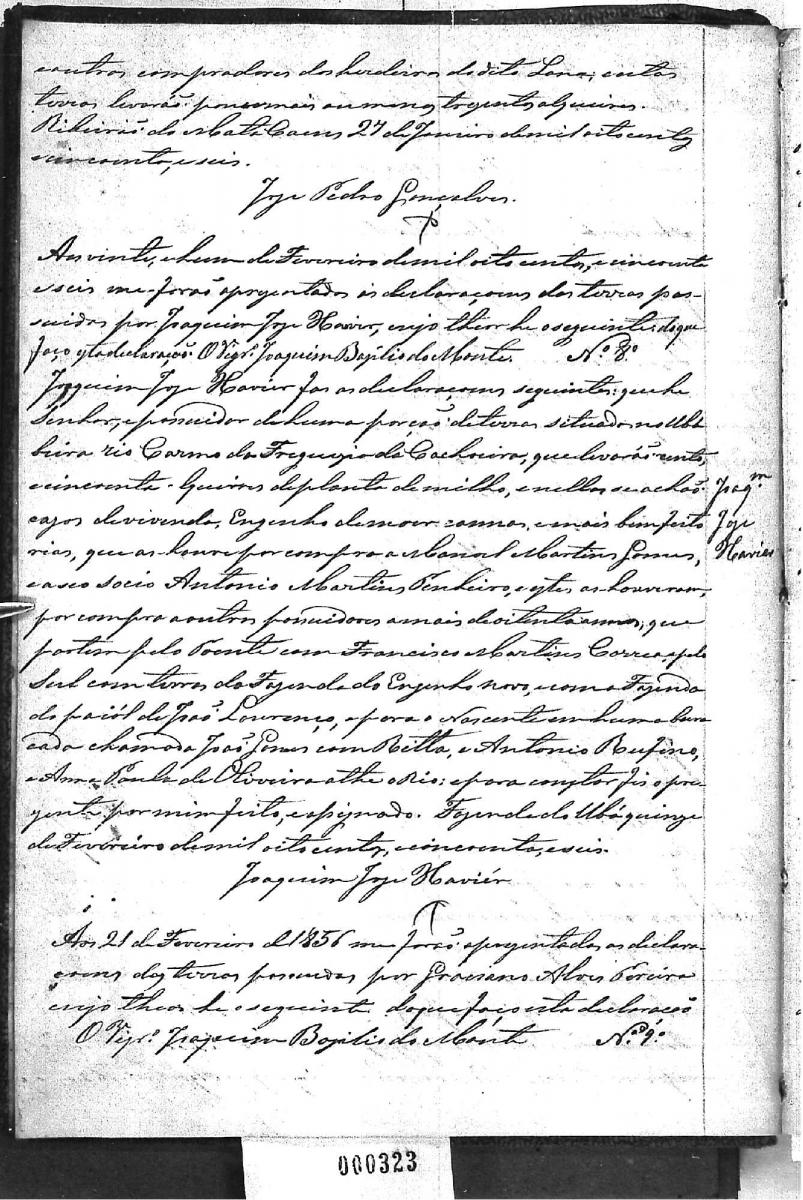 e outros compradores dos herdeiros do dito Lana; e estas
terras levarão pouco mais ou menos trezentos alqueires.
Ribeirão do Mata Caens 27 de Janeiro de mil oito centos
e cincoenta, e seis.
Joze Pedro Gonçalves.
Aos vinte, e hum de Fevereiro de mil oito centos, e cincoenta
e seis me forão aprezentados as declaraçoens das terras pos-
suidas por Joaquim Joze Xavier, cujo theor he o seguinte: do que
faço esta declaracão. O Vigrº. Joaquim Bazilio do Monte. Nº 8º
Joaquim Joze Xavier fas as declaraçoens seguintes: que he
Senhor, e possuidor de huma porção de terras situada no Ubá
beira rio Carmo da Freguezia da Cachoeira, que levarão cento,
e cincoenta Queires de planta de milho, e nellas se achão
cazas de vivenda, Engenho de moer cannas, e mais bemfeito
rias, que as houve por compra a Manoel Martins Gomes,
e a seo socio Antonio Martins Penheiro, e estes as houveram,
por compra a outros possuidores a mais de oitenta annos; que
partem pelo Poente com Francisco Martins Correa, e pelo
Sul com terras da Fazenda do Engenho novo, e com a Fazenda
do paiól de João Lourenço, e para o Nascente em huma bar
cada chamada João Gomes com Ritta, e Antonio Rufino,
e Anna Paula de Oliveira athe o Rio: e para constar fis o pre-
zente, por mim feito, e asignado. Fazenda do Ubá quinze
de Fevereiro de mil oito centos, e cincoenta, e seis.
Joaquim Joze Xaviér
Joaqm
Joze
Xavier
Aos 21 de Fevereiro de 1856 me forão aprezentadas as declara-
çoens das terras possuidas por Graciano Alves Pereira
cujo theor he o seguinte do que faço esta declaração
O Vigrº. Joaquim Bazilio do Monte Nº 9º
000323